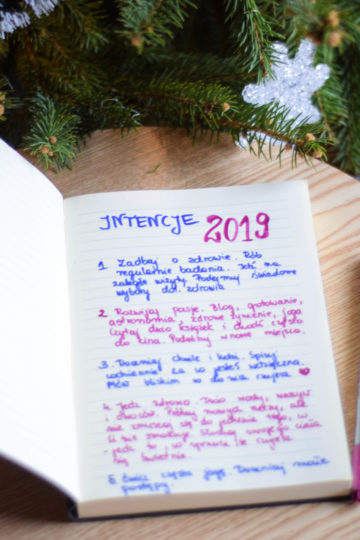 INTENCJE 2019
1 Zadbaj o zdrowie. Rób
regularnie badania. Idź na
zaległe wizyty. Podejmuj świadome
wybory dot. zdrowia
2. Rozwijaj pasje. Blog, gotowanie,
astronomia, zdrowe żywienie, joga
Czytaj dużo książek i chodź często
do kina. Podróżuj w nowe miejsca.
3. Doceniaj chwile i ludzi. Spisuj
codziennie za co jesteś wdzięczna.
Mów bliskim co do nich czujesz
4. Jedz zdrowo. Dużo wody, warzyw
i owoców. Próbuj nowych rzeczy, ale
nie zmuszaj się do jedzenia tego, co
Ci nie smakuje. Słuchaj swojego ciała
- jedz to, co sprawia że czujesz
się świetnie.
5 Ćwicz często jogę. Doceniaj małe
postępy.